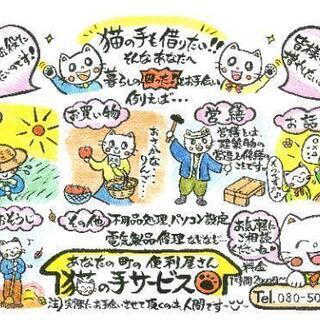 猫の手も借りたい!!
そんなあなたへ
暮らしの困ったお手伝い
例えば・・・
お買い物
営繕
お話
おさんりなんで…
営繕とは、
建築物の
営造と修繕の
ことです。
おそうじ
その他
不用品処理 パソコン設定
電気製品修理などなど
お気軽に
ご相談
くださいね
料金
あなたの町の便利屋さん
猫の手サービス
注)実際にお手伝いさせて頂くのは、人間です
Tel.080-50